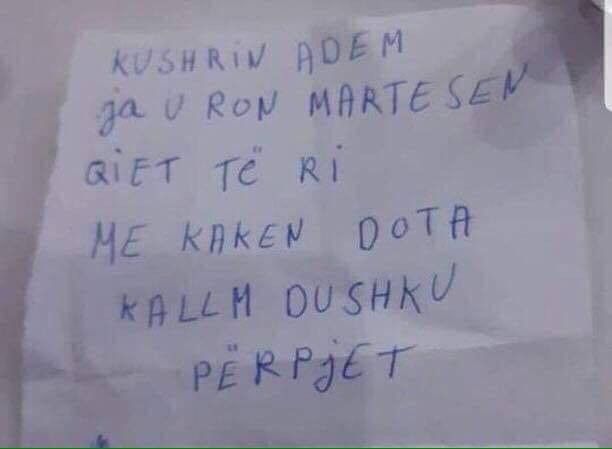 KUSHRiN ADEM
ja U RON MARTESEN
QiET TË Ri
ME KAKEN DOTA
KALLM DUSHKU
PËRPjET